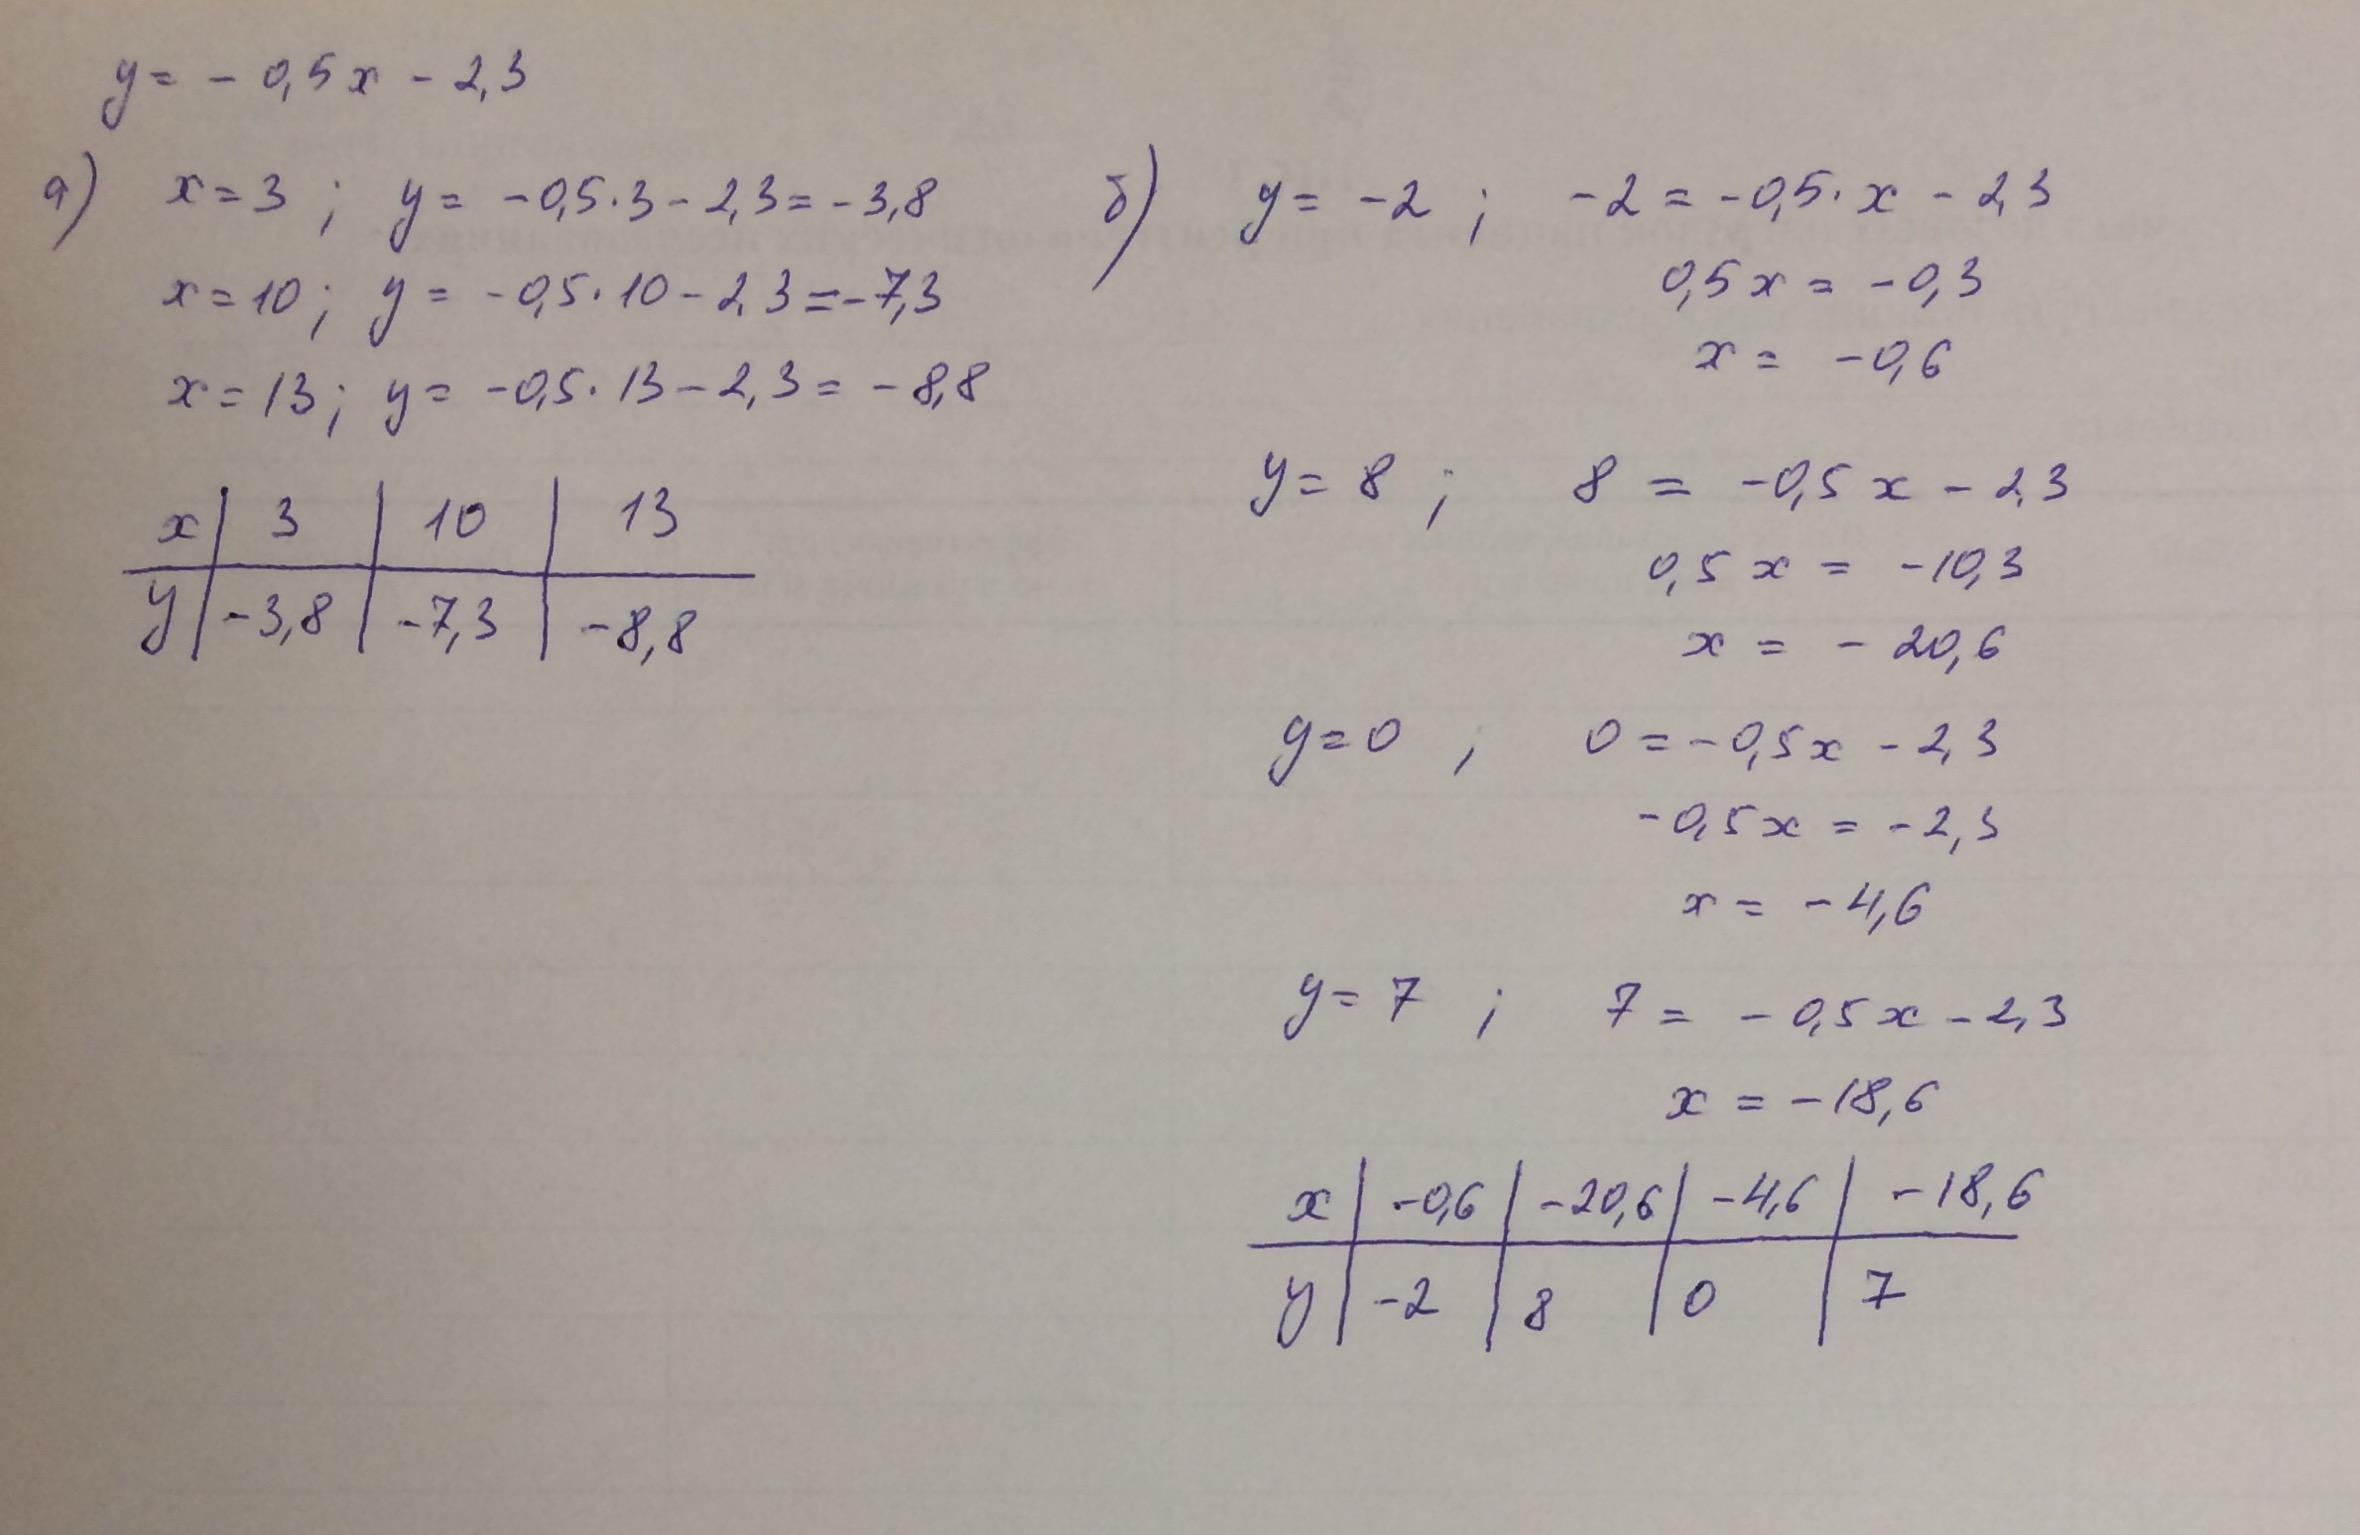 y = - 0,5x - 2,3
а) x = 3 ; y = -0,5·3 - 2,3 = -3,8
x = 10 ; y = -0,5·10 - 2,3 = -7,3
x = 13 ; y = -0,5·13 - 2,3 = -8,8
x | 3 | 10 | 13
y | -3,8 | -7,3 | -8,8
б) y = -2 ; -2 = -0,5·x - 2,3
0,5x = -0,3
x = -0,6
y = 8 ; 8 = -0,5x - 2,3
0,5x = -10,3
x = - 20,6
y = 0 ; 0 = -0,5x - 2,3
-0,5x = -2,3
x = -4,6
y = 7 ; 7 = -0,5x - 2,3
x = -18,6
x | -0,6 | -20,6 | -4,6 | -18,6
y | -2 | 8 | 0 | 7